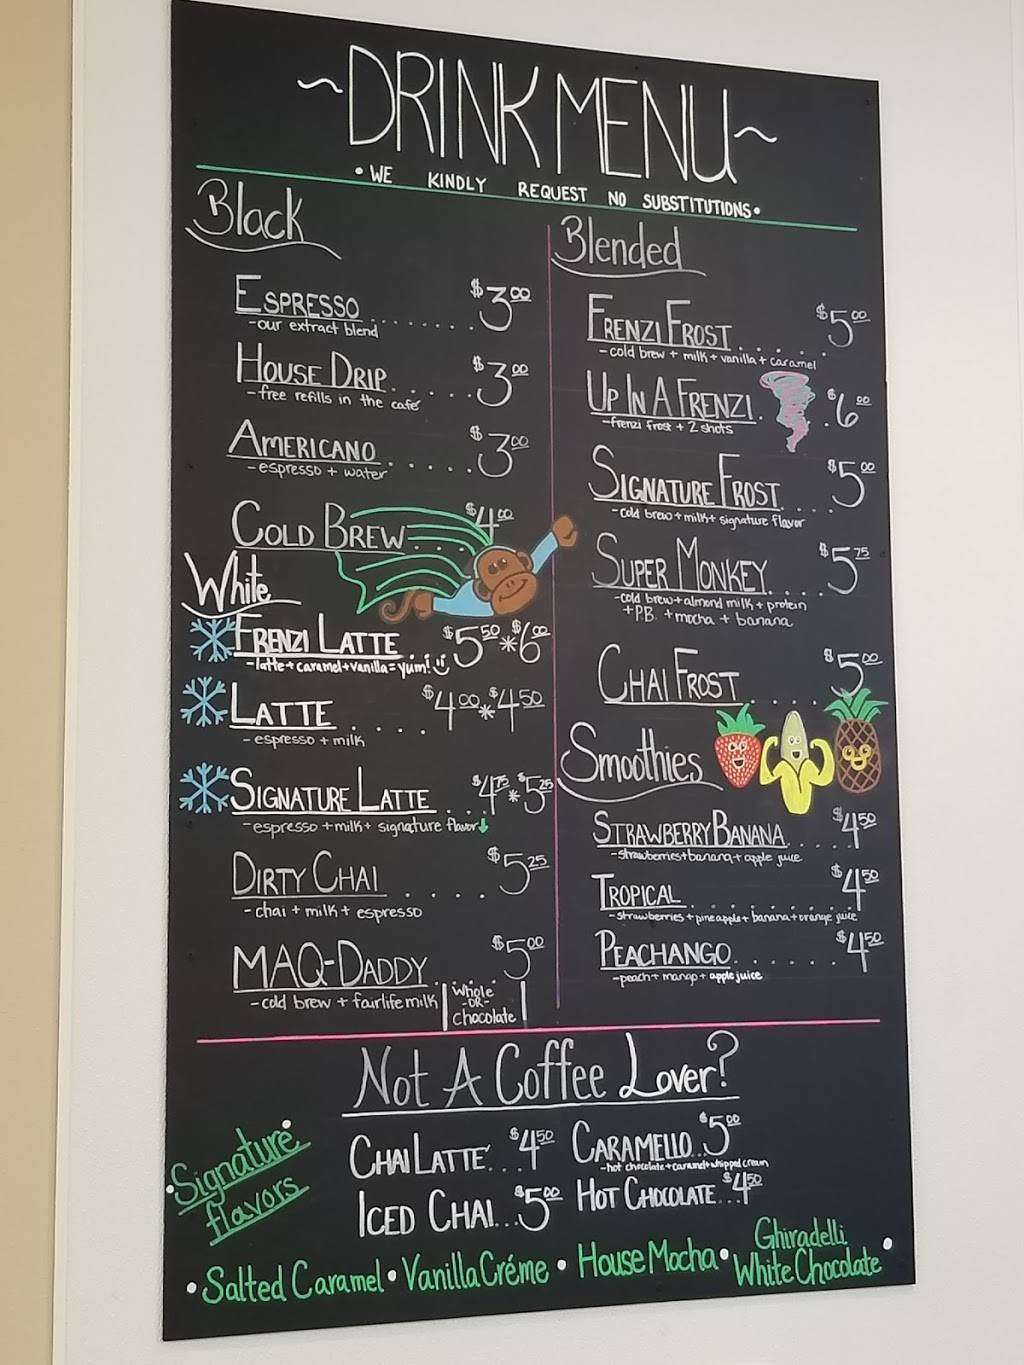 ~DRINK MENU~
• WE KINDLY REQUEST NO SUBSTITUTIONS •
Black
ESPRESSO ........ $3.00
- our extract blend
HOUSE DRIP ..... $3.00
- free refills in the café
AMERICANO ..... $3.00
- espresso + water
COLD BREW .... $4.00
White
FRENZI LATTE .. $5.50 * $6.00
- latte + caramel + vanilla = yum! :)
LATTE .... $4.00 * $4.50
- espresso + milk
SIGNATURE LATTE .. $4.75 * $5.25
- espresso + milk + signature flavor ↓
DIRTY CHAI ..... $5.25
- chai + milk + espresso
MAQ-DADDY .... $5.00
- cold brew + fairlife milk | whole
-OR-
chocolate |
Blended
FRENZI FROST ...... $5.00
- cold brew + milk + vanilla + caramel
UP IN A FRENZI .. $6.00
- frenzi frost + 2 shots
SIGNATURE FROST .... $5.00
- cold brew + milk + signature flavor
SUPER MONKEY .... $5.75
- cold brew + almond milk + protein
+ P.B. + mocha + banana
CHAI FROST ..... $5.00
Smoothies
STRAWBERRY BANANA ..... $4.50
- strawberries + banana + apple juice
TROPICAL .......... $4.50
- strawberries + pineapple + banana + orange juice
PEACHANGO ....... $4.50
- peach + mango + apple juice
Not A Coffee Lover?
CHAI LATTE ... $4.50 CARAMELLO ... $5.00
- hot chocolate + caramel + whipped cream
ICED CHAI ... $5.00 HOT CHOCOLATE ... $4.50
Signature
flavors
• Salted Caramel • Vanilla Créme • House Mocha • Ghiradelli
White Chocolate •